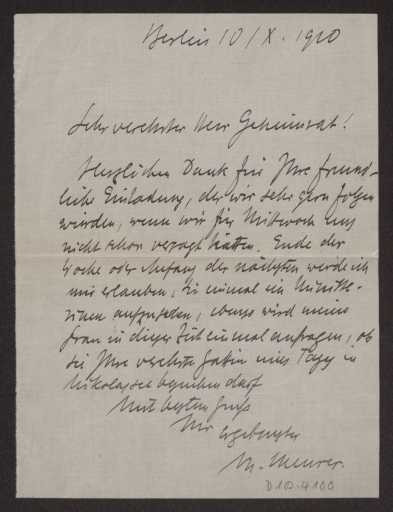 Berlin 10/X. 1910
Sehr verehrter Herr Geheimrat!
Herzlichen Dank für Ihre freund-
liche Einladung, der wir sehr gern folgen
würden, wenn wir für Mittwoch uns
nicht schon versagt hätten. Ende der
Woche oder Anfang der nächsten werde ich
mir erlauben, Sie einmal in
aufzusuchen, ebenso wird meine
Frau in dieser Zeit einmal anfragen, ob
sie Ihre verehrte Gattin eines Tages in
Nikolassee begrüßen darf
Mit bestem Gruß
Ihr ergebenster
M. Meurer.
D10.4100